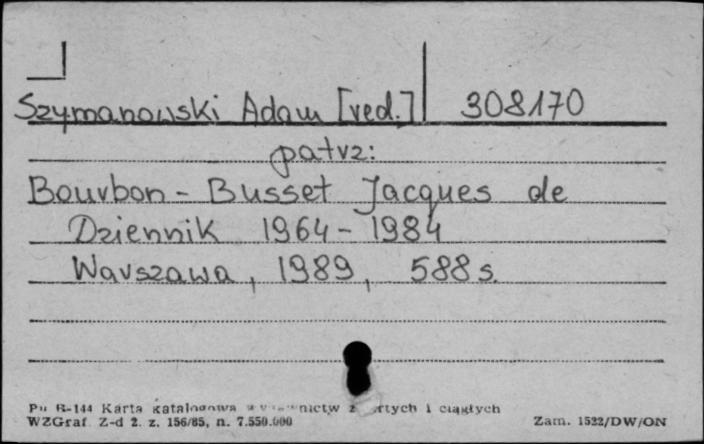 Szymanowski Adam [red.] 308170
patrz:
Bourbon - Busset Jacques de
Dziennik 1964 - 1984
Warszawa, 1989, 588 s.
Pu B-144 Karta katalogowa wydawnictw zwartych i ciągłych
WZGraf. Z-d 2. z. 156/85, n. 7.550.000 Zam. 1522/DW/ON